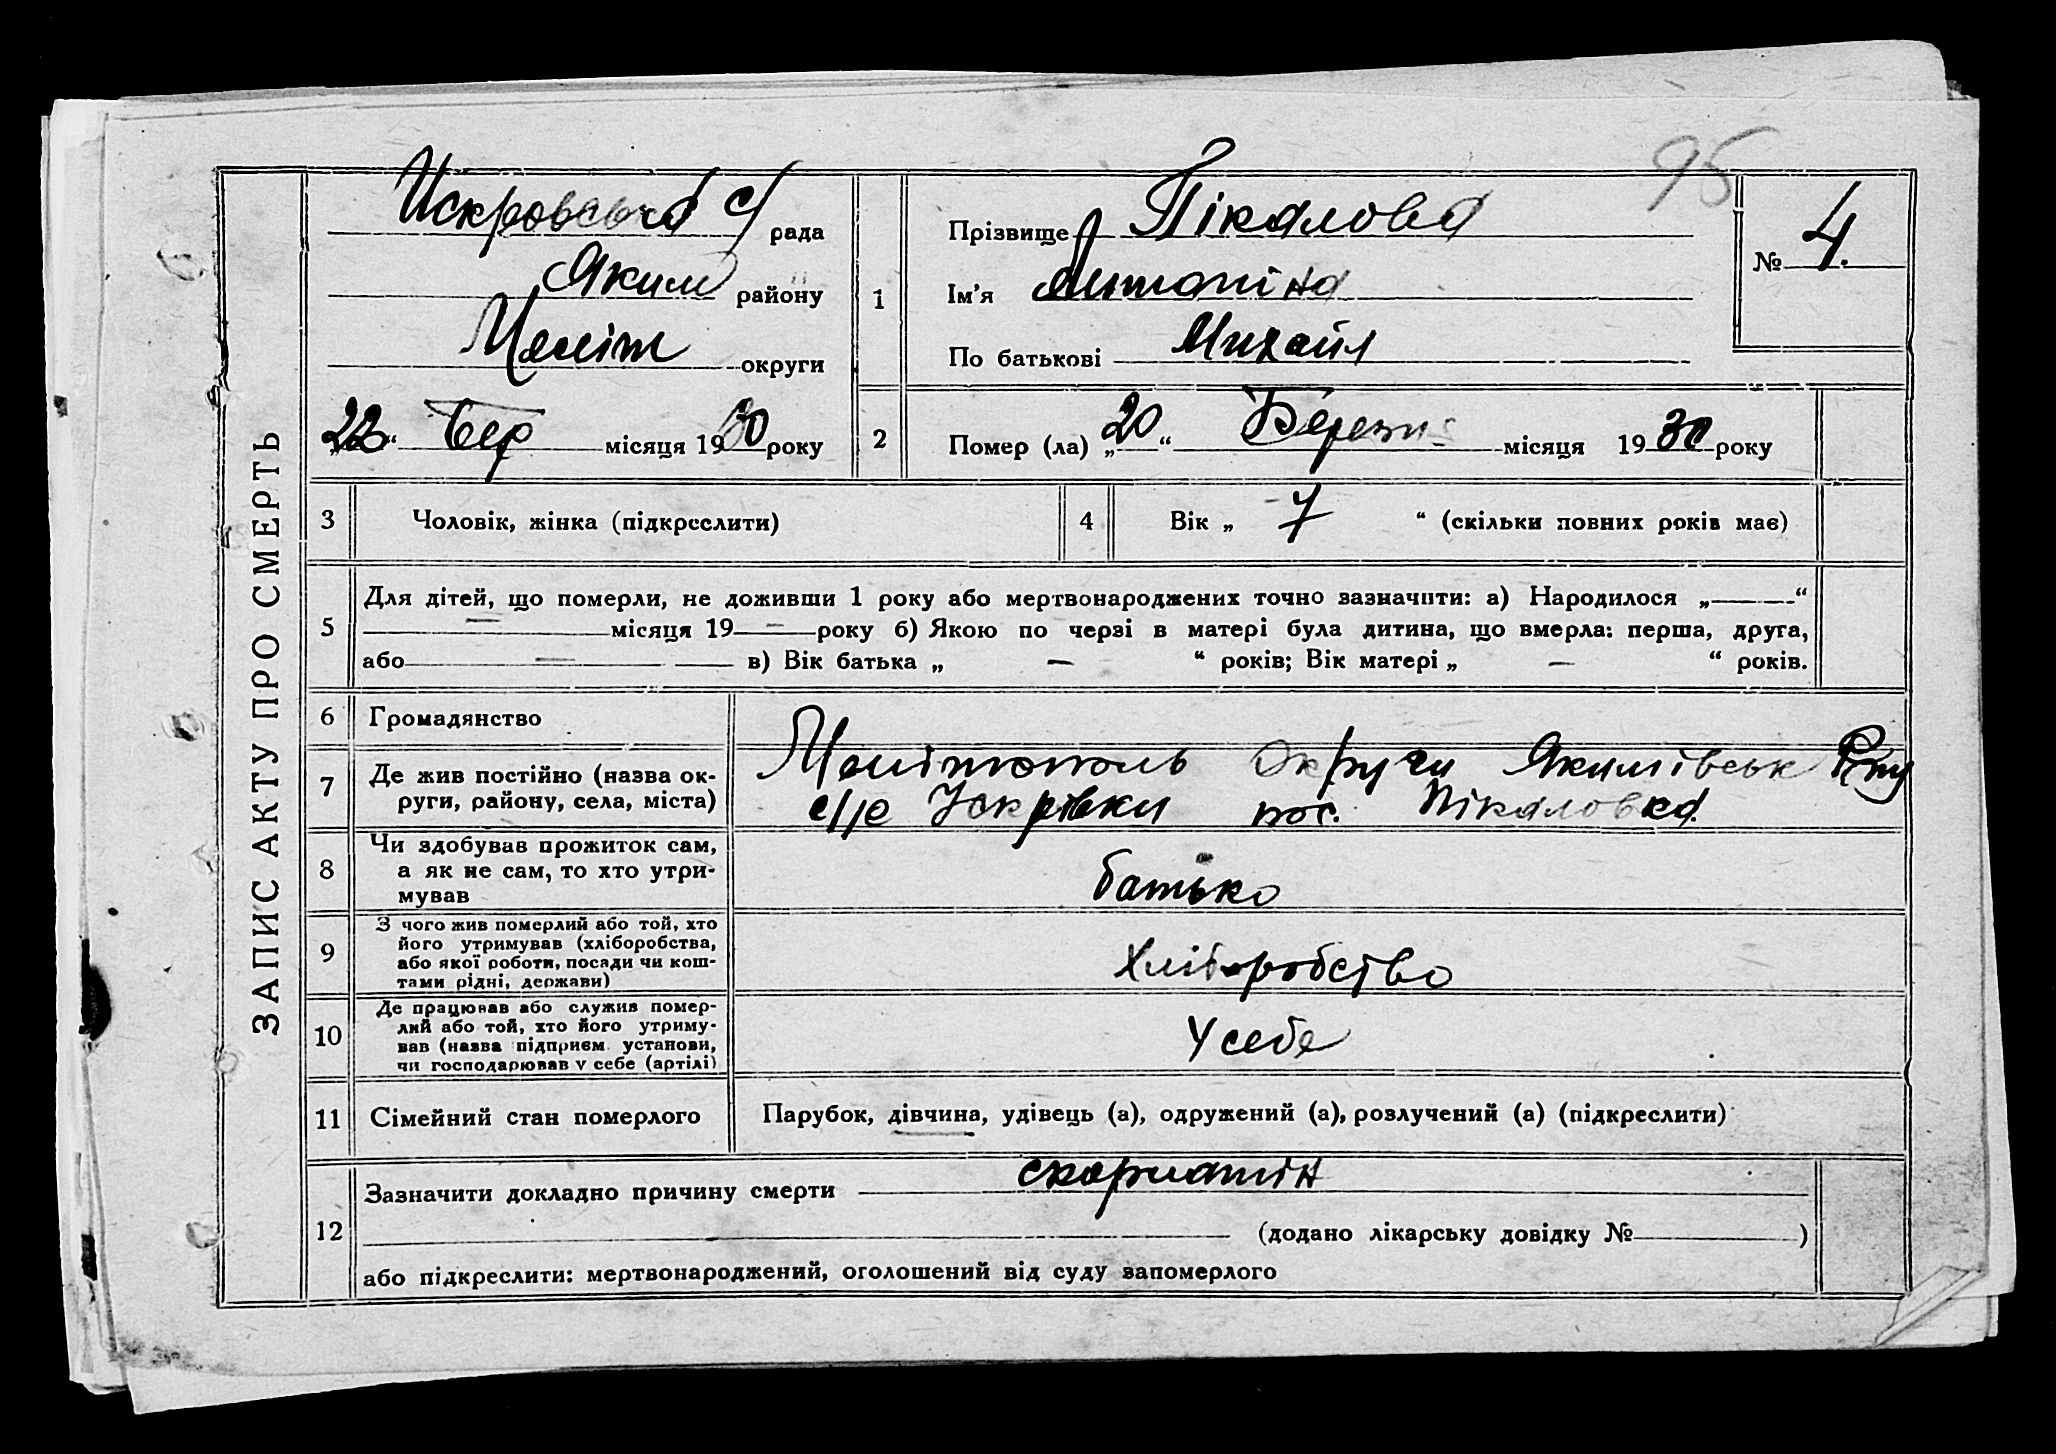 95
ЗАПИС АКТУ ПРО СМЕРТЬ
Искровська с/ рада
Яким району
Меліт округи
„22“ Бер місяця 1930 року
1
Прізвище Пікалова
Ім’я Антоніна
По батькові Михайл
№ 4.
2
Помер (ла) „20“ Березня місяця 1930 року
3 Чоловік, жінка (підкреслити)
4 Вік „ 7 “ (скільки повних років має)
5
Для дітей, що померли, не доживши 1 року або мертвонароджених точно зазначити: а) Народилося „—“
— місяця 19 — року б) Якою по черзі в матері була дитина, що вмерла: перша, друга,
або — в) Вік батька „ — “ років; Вік матері „ — “ років.
6 Громадянство
7
Де жив постійно (назва ок-
руги, району, села, міста)
Мелітополь Округи Якимівськ Р-ну
с/р Іскрівки пос. Пікаловка
8
Чи здобував прожиток сам,
а як не сам, то хто утри-
мував
батько
9
З чого жив померлий або той, хто
його утримував (хліборобства,
або якої роботи, посади чи кош-
тами рідні, держави)
Хліборобство
10
Де працював або служив помер-
лий або той, хто його утриму-
вав (назва підприєм. установи,
чи господарював у себе (артілі)
У себе
11 Сімейний стан померлого
Парубок, дівчина, удівець (а), одружений (а), розлучений (а) (підкреслити)
12
Зазначити докладно причину смерти скарлатін
(додано лікарську довідку № )
або підкреслити: мертвонароджений, оголошений від суду запомерлого